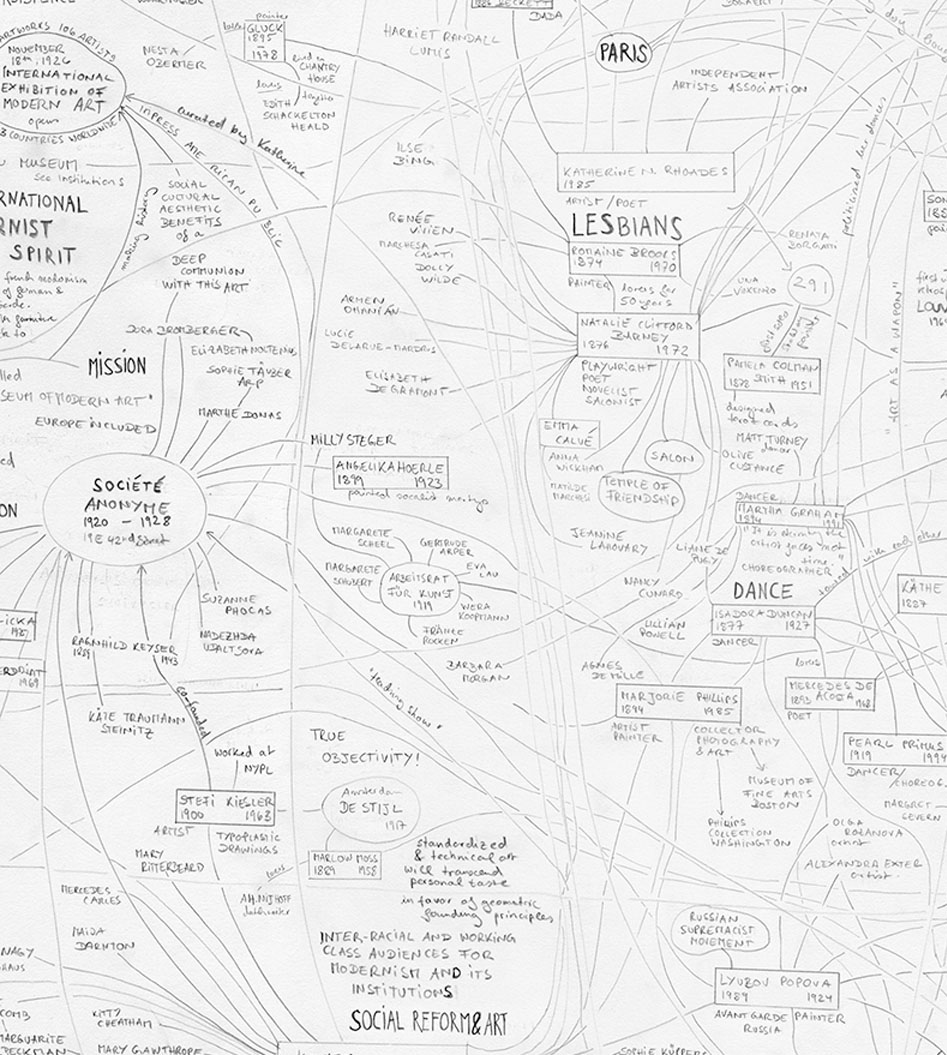 painter
loves
GLUCK
1895
–
1978
lived in
CHANTRY
HOUSE
loves
together
EDITH
SCHACKELTON
HEALD
NESTA
OBERMER
HARRIET RANDALL
LUMIS
DADA
PARIS
INDEPENDENT
ARTISTS ASSOCIATION
ARTWORKS 106 ARTISTS
NOVEMBER
18th, 1926
INTERNATIONAL
EXHIBITION OF
MODERN ART
opens
3 COUNTRIES WORLDWIDE
curated by Katherine
MUSEUM
see Institutions
making history
SOCIAL
CULTURAL
AESTHETIC
BENEFITS
of a
DEEP
COMMUNION
WITH THIS ART
SPIRIT
ILSE
BING
RENÉE
VIVIEN
MARCHESA
CASATI
DOLLY
WILDE
ARMEN
OHANIAN
LUCIE
DELARUE-MARDRUS
ELISABETH
DE GRAMONT
KATHERINE N. RHOADES
1985
ARTIST/POET
LESBIANS
ROMAINE BROOKS
1874 1970
PAINTER
lovers for
50 years
NATALIE CLIFFORD
BARNEY
1876 1972
PLAYWRIGHT
POET
NOVELIST
SALONIST
RENATA
BORGATTI
291
politicized her dances
"ART AS A WEAPON"
PAMELA COLMAN
1878 SMITH 1951
designed
tarot cards
MATT TURNEY
dancer
OLIVE
CUSTANCE
EMMA
CALVÉ
ANNA
WICKHAM
MATILDE
MARCHESI
SALON
TEMPLE OF
FRIENDSHIP
DORA BROMBERGER
ELIZABETH NOLTENIUS
SOPHIE TÄUBER
ARP
MARTHE DONAS
MISSION
EUROPE INCLUDED
MILLY STEGER
ANGELIKA HOERLE
1899 1923
SOCIÉTÉ
ANONYME
1920 – 1928
19 E 42nd Street
MARGARETE
SCHEEL
GERTRUDE
ARPER
MARGARETE
SCHUBERT
ARBEITSRAT
FÜR KUNST
1919
EVA
LAU
WERA
KOOPMANN
FRÄNCE
ROCKEN
BARBARA
MORGAN
JEANNINE
LAHOVARY
LIANE DE
PUGY
NANCY
CUNARD
LILLIAN
POWELL
AGNES
DE MILLE
DANCER
MARTHA GRAHAM
1894 1991
CHOREOGRAPHER
with each other
DANCE
ISADORA DUNCAN
1877 1927
DANCER
KÄTHE
1887
loves
MERCEDES DE
1893 ACOSTA 1968
POET
MARJORIE PHILLIPS
1894 1985
ARTIST
PAINTER
COLLECTOR
PHOTOGRAPHY
& ART
MUSEUM OF
FINE ARTS
BOSTON
PHILLIPS
COLLECTION
WASHINGTON
PEARL PRIMUS
1919 1994
DANCER/
CHOREOG.
MARGRET
SEVERN
OLGA
ROZANOVA
artist
ALEXANDRA EXTER
artist
SUZANNE
PHOCAS
NADEZHDA
UDALTSOVA
RAGNHILD KEYSER
1889 1943
KÄTE TRAUMANN
STEINITZ
co-founded
"traveling show"
worked at
NYPL
STEFI KIESLER
1900 1963
ARTIST
TYPOPLASTIC
DRAWINGS
TRUE
OBJECTIVITY!
Amsterdam
DE STIJL
1917
MARLOW MOSS
1889 1958
loves
A.H. NIJHOFF
MARY
RITTER BEARD
MERCEDES
CARLES
standardized
& technical art
will transcend
personal taste
in favor of geometric
founding principles
INTER-RACIAL AND WORKING
CLASS AUDIENCES FOR
MODERNISM AND ITS
INSTITUTIONS
SOCIAL REFORM & ART
KITTY
CHEATHAM
MARGUARITE
MARY GAWTHROPE
RUSSIAN
SUPREMACIST
MOVEMENT
LYUBOV POPOVA
1989 1924
AVANT GARDE
RUSSIA
PAINTER